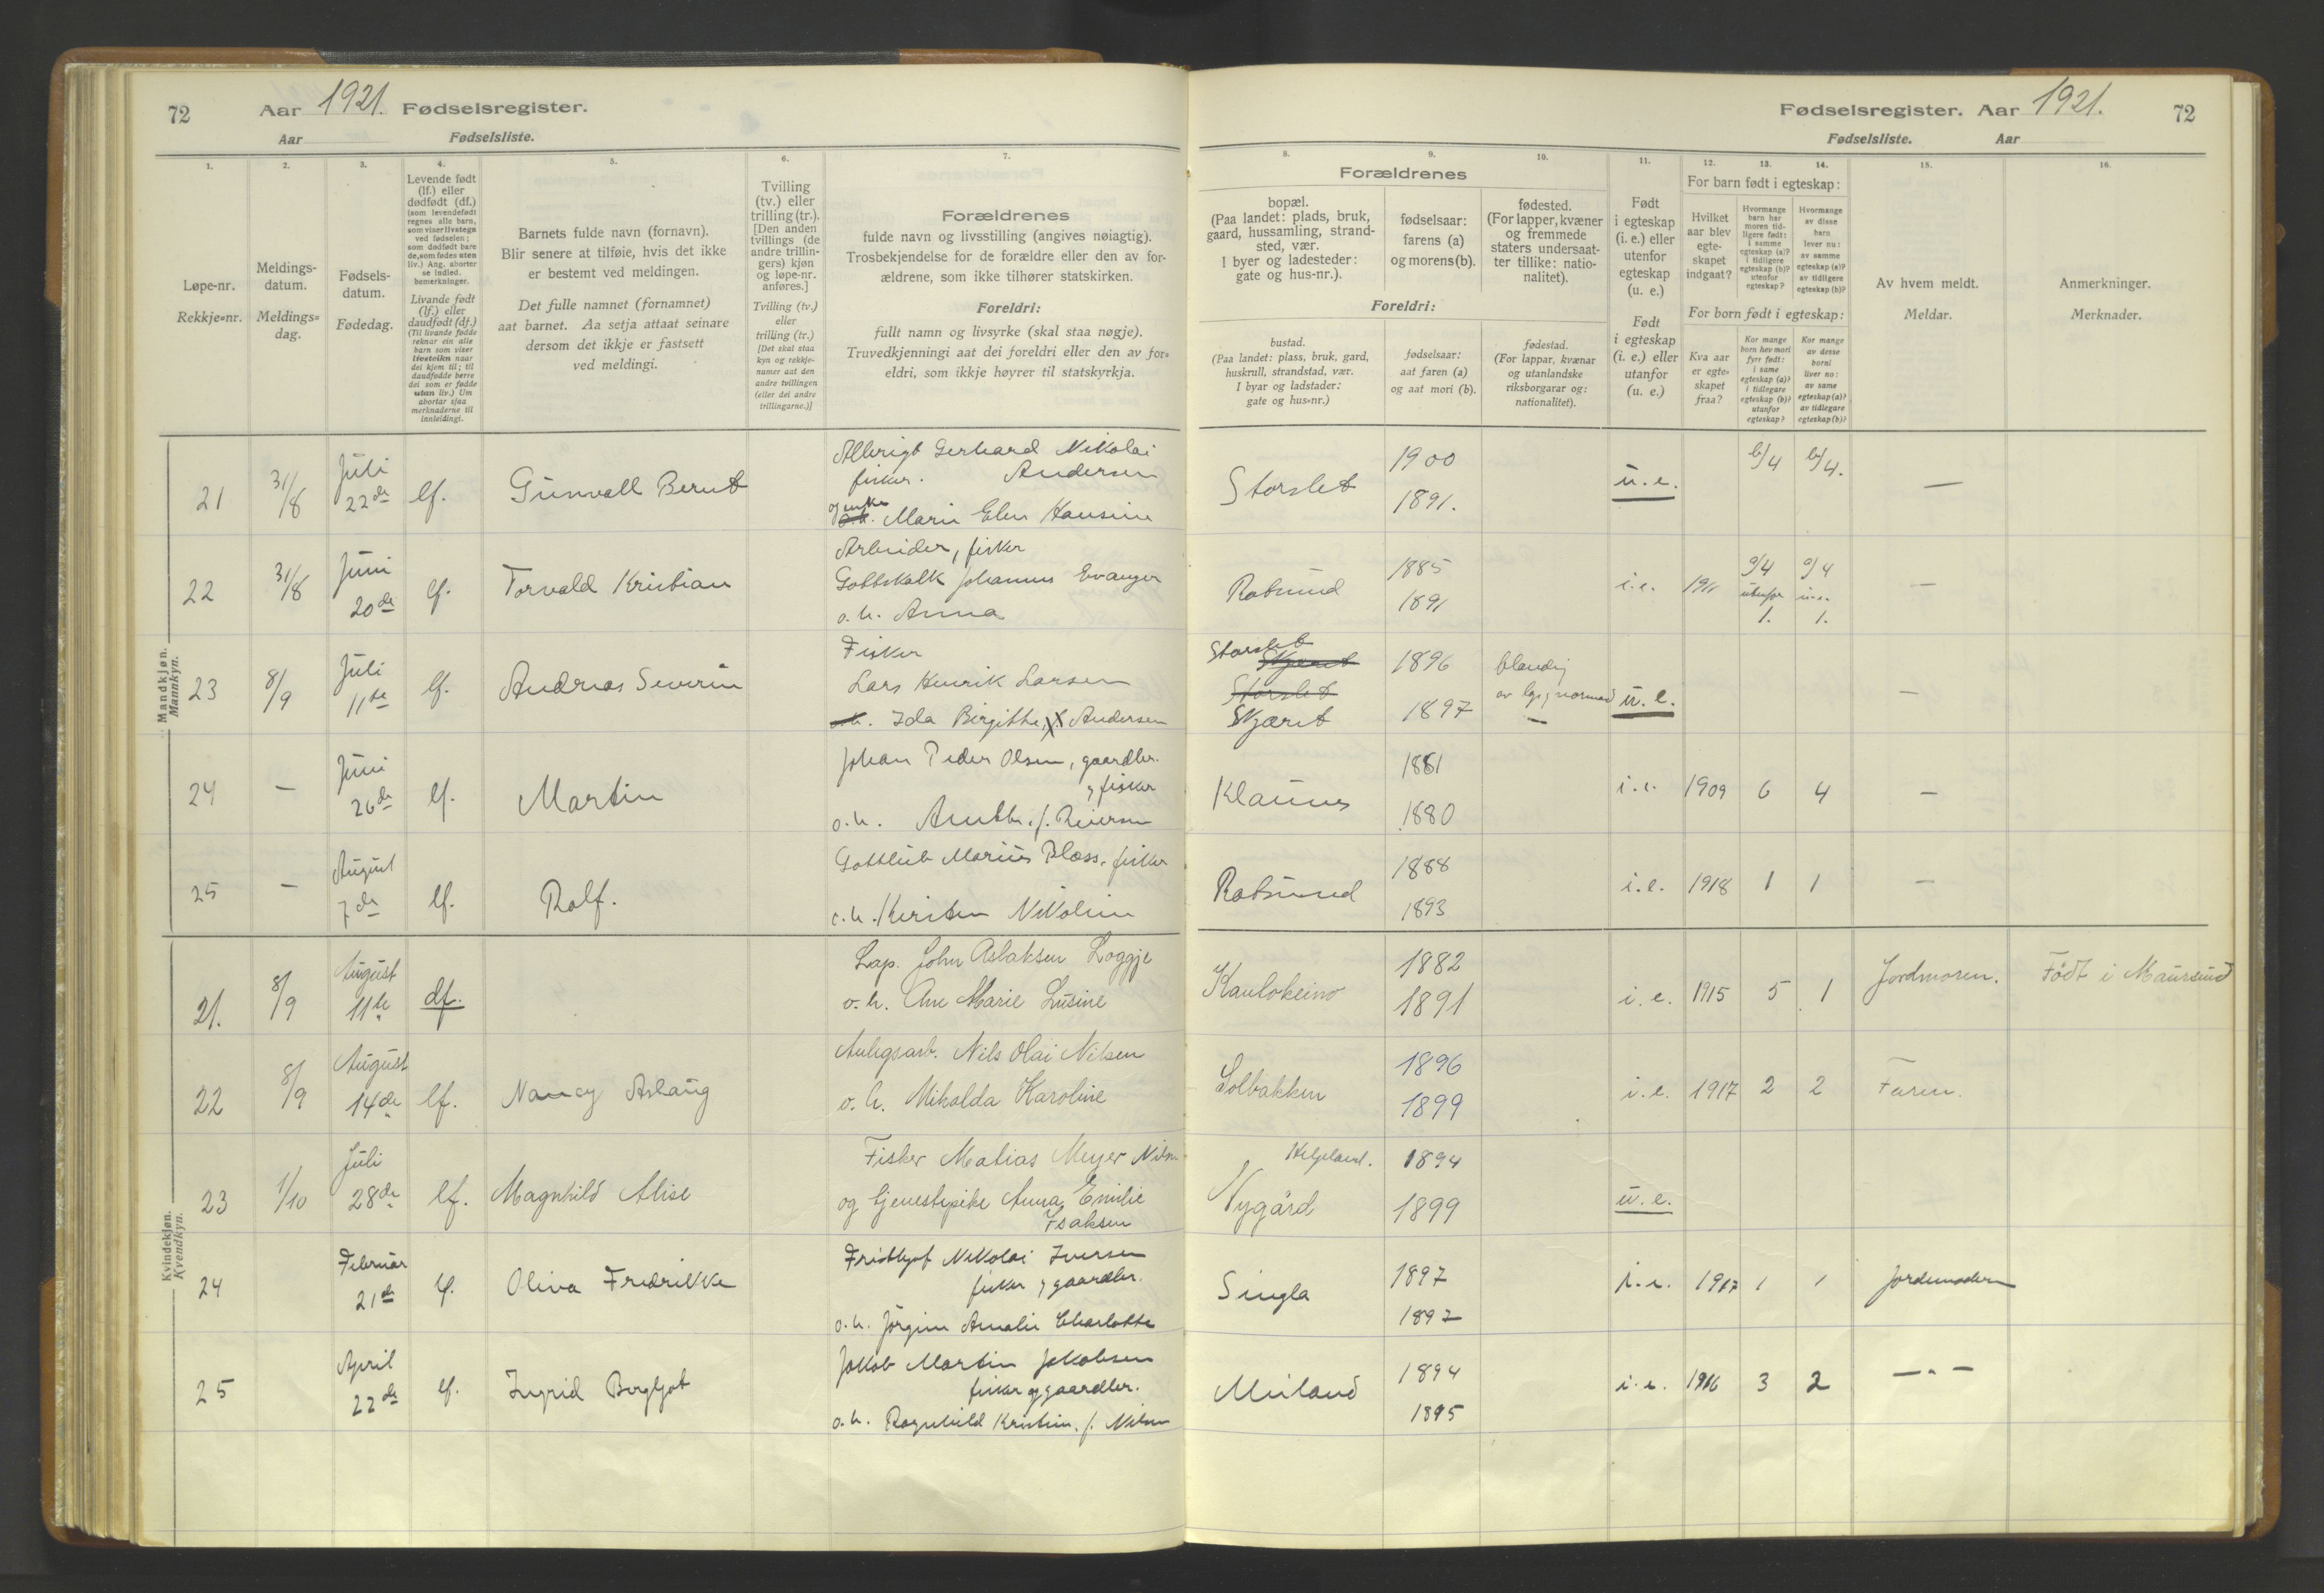 72 Aar 1921. Fødselsregister.
Aar Fødselsliste.
Fødselsregister. Aar 1921. 72
Fødselsliste. Aar
1. 2. 3. 4. 5. 6. 7.
Løpe-nr.
Rekkje=nr.
Meldings-
datum.
Meldings=
dag.
Fødsels-
datum.
Fødedag.
Levende født
(lf.) eller
dødfødt (df.)
(som levendefødt
regnes alle barn,
som viser livstegn
ved fødselen;
som dødfødt bare
de, som fødes uten
liv.) Ang. aborter
se indled.
bemerkninger.
Livande født
(lf.) eller
daudfødt (df.)
(Til livande fødde
reknar ein alle
barn som viser
livsteikn naar
dei kjem til; til
daudfødde berre
dei som er fødde
utan liv.) Um
abortar sjaa
merknaderne til
innleidingi.
Barnets fulde navn (fornavn).
Blir senere at tilføie, hvis det ikke
er bestemt ved meldingen.
Det fulle namnet (fornamnet)
aat barnet. Aa setja attaat seinare
dersom det ikkje er fastsett
ved meldingi.
Tvilling
(tv.) eller
trilling (tr.).
[Den anden
tvillings (de
andre trillin-
gers) kjøn
og løpe-nr.
anføres.]
Tvilling (tv.)
eller
trilling (tr.)
[Det skal staa
kyn og rekkje-
numer aat den
andre tvillingen
(eller dei andre
trillingarne.)]
Forældrenes
fulde navn og livsstilling (angives nøiagtig).
Trosbekjendelse for de forældre eller den av for-
ældrene, som ikke tilhører statskirken.
Foreldri:
fullt namn og livsyrke (skal staa nøgje).
Truvedkjenningi aat dei foreldri eller den av for=
eldri, som ikkje høyrer til statskyrkja.
8. 9. 10. 11. 12. 13. 14. 15. 16.
Forældrenes
bopæl.
(Paa landet: plads, bruk,
gaard, hussamling, strand-
sted, vær.
I byer og ladesteder:
gate og hus-nr.).
fødselsaar:
farens (a)
og morens (b).
fødested.
(For lapper, kvæner
og fremmede
staters undersaat-
ter tillike: natio-
nalitet).
Foreldri:
bustad.
(Paa landet: plass, bruk, gard,
huskrull, strandstad, vær.
I byar og ladstader:
gate og hus=nr.)
fødselsaar:
aat faren (a)
og aat mori (b).
fødestad.
(For lappar, kvænar
og utanlandske
riksborgarar og:
nationalitet).
Født
i egteskap
(i. e.) eller
utenfor
egteskap
(u. e.)
Født
i egteskap
(i. e.) eller
utanfor
(u. e.)
For barn født i egteskap:
Hvilket
aar blev
egte-
skapet
indgaat?
Hvormange
barn har
moren tid-
ligere født:
i samme
egteskap (a)?
i tidligere
egteskap (b)?
utenfor
egteskap?
Hvormange
av disse
barn
lever nu:
av samme
egteskap (a)?
av tidligere
egteskap (b)?
For born født i egteskap:
Kva aar
er egte=
skapet
fraa?
Kor mange
born hev mori
fyrr født:
i same
egteskap (a)?
i tidlegare
egteskap (b)?
utanfor
egteskap?
Kor mange
av desse
borni
liver no:
av same
egteskap (a)?
av tidlegare
egteskap (b)?
Av hvem meldt.
Meldar.
Anmerkninger.
Merknader.
Mandkjøn.
Mannkyn.
21 31/8 Juli 22de lf. Gunvall Bernt
Albrigt Gerhard Nikolai
fisker. Andersen
og enke Marie Elen Hansine
Storslet 1900 1891. u.e. b/4 b/4. —
22 31/8 Juni 20de lf. Torvald Kristian
Arbeider, fisker
Gottskalk Johannes Evanger
o.h. Anna
Rotsund 1885 1891 i.e. 1911 a/4 utenfor 1. a/4 u.e. 1. —
23 8/9 Juli 11te lf. Andreas Severin
Fisker
Lars Henrik Larsen
o.h. Ida Birgitte, f. Andersen
Storslet Skjæret Storslet Skjæret 1896 1897 blandig av lap. og normand — u.e. —
24 — Juni 26de lf. Martin
Johan Peder Olsen, gaardbr.
og fisker
o.h. Anette. f. Reiersen
Klaunes 1881 1880 i.e. 1909 6 4 —
25 — August 7de lf. Rolf.
Gottlieb Marius Bloss, fisker
o.h. Kirsten Nikoline
Rotsund 1888 1893 i.e. 1918 1 1 —
Kvindekjøn.
Kvendkyn.
21. 8/9 August 11te df.
Lap. John Aslaksen Loggje
o.h. Ane Marie Lusine
Kautokeino 1882 1891 i.e. 1915 5 1 Jordmoren. Født i Maursund
22 8/9 August 14de lf. Nancy Aslaug
Anlegsarb. Nils Olai Nilsen
o.h. Mikalda Karoline
Solbakken 1896 1899 i.e. 1917 2 2 Faren.
23 1/10 Juli 28de lf. Magnhild Alise
Fisker Matias Meyer Nilsen
og tjenestepike Anna Emilie
Isaksen
Helgeland. Nygård 1894 1899 u.e.
24 Februar 21de lf. Oliva Fredrikke
Fridtjof Nikolai Iversen
fisker og gaardbr.
o.h. Jørgine Amalie Charlotte
Singla 1897 1897 i.e. 1917 1 1 Jordemoderen
25 April 22de lf. Ingrid Bergljot
Jakob Martin Jakobsen
fisker og gaardbr.
o.h. Ragnhild Kristine. f. Nilsen
Meiland 1894 1895 i.e. 1916 3 2 — " —